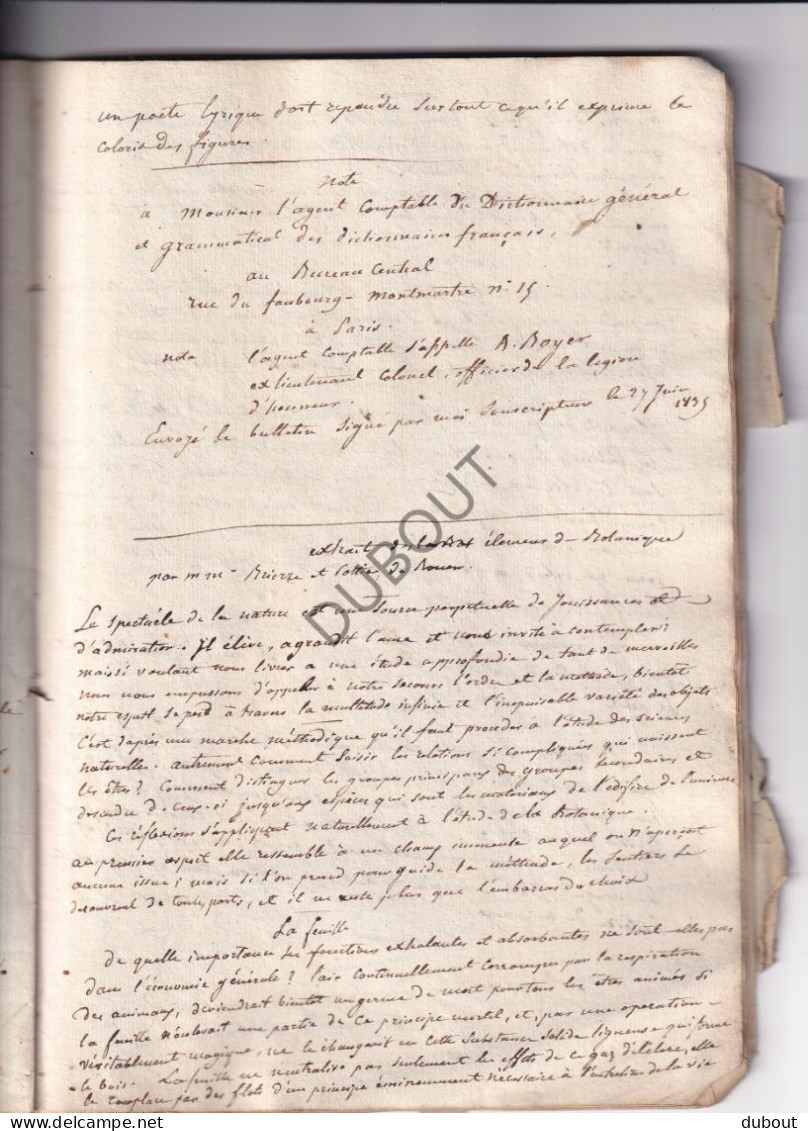 un poete lyrique doit repandre surtout ce qu'il exprime le
coloris des figures.
note
à Monsieur l'agent Comptable du Dictionnaire général
et grammatical des dictionnaires français,
au Bureau Central
rue du faubourg-montmartre n° 15
à Paris.
nota l'agent Comptable s'appelle A. Boyer
ex lieutenant Colonel, officier de la legion
d'honneur.
Envoyé le bulletin signé par moi souscripteur le 27 Juin
1835
extrait des élemens de Botanique
par mm. Brierre et Pottier de Rouen
Le spectacle de la nature est une source perpetuelle de Jouissances et
d'admiration. Il élève, agrandit l'ame et nous invite à contempler;
mais si voulant nous livrer a une étude approfondie de tant de merveilles
nous nous empressons d'appeler à notre secours l'ordre et la methode, bientôt
notre esprit se perd à travers la multitude infinie et l'inepuisable variété des objets.
C'est d'après une marche méthodique qu'il faut proceder à l'étude des sciences
naturelles. autrement comment saisir les relations si compliquées qui unissent
les êtres? Comment distinguer les groupes principaux des groupes secondaires et
descendre de ceux-ci jusqu'aux espèces qui sont les materiaux de l'edifice de l'univers
Ces réflexions s'appliquent naturellement à l'étude de la Botanique.
au premier aspect elle ressemble à un champ immense auquel on n'aperçoit
aucune issue; mais si l'on prend pour guide la méthode, les sentiers se
decouvrent de toutes parts, et il ne reste plus que l'embarras du choix
La feuille
De quelle importance ses fonctions exhalantes et absorbantes ne sont-elles pas
dans l'économie générale? l'air continuellement corrompu par la respiration
des animaux, deviendrait bientôt un germe de mort pour tous les êtres animés si
la feuille n'enlevait une partie de ce principe mortel, et, par une operation
véritablement magique, ne le changeait en cette substance solide ligneuse qui forme
le bois. La feuille ne neutralise pas seulement les effets de ce gaz délétère, elle
le remplace par des flots d'un principe éminemment nécessaire à l'entretien de la vie
DUBOUT
delcampe.net
dubout